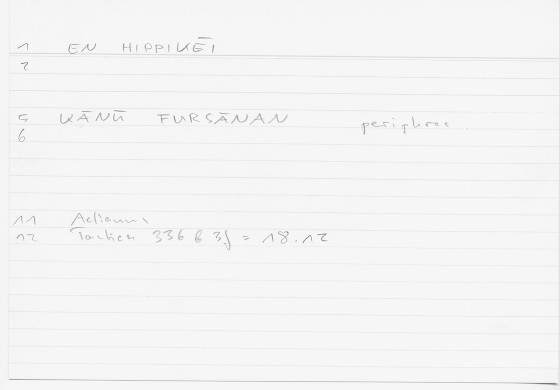 1 EN HIPPIKĒI
2
5 KĀNŪ FURSĀNAN periphras.
6
11 Aelianus
12 Tactica 336 B 3f = 18.12